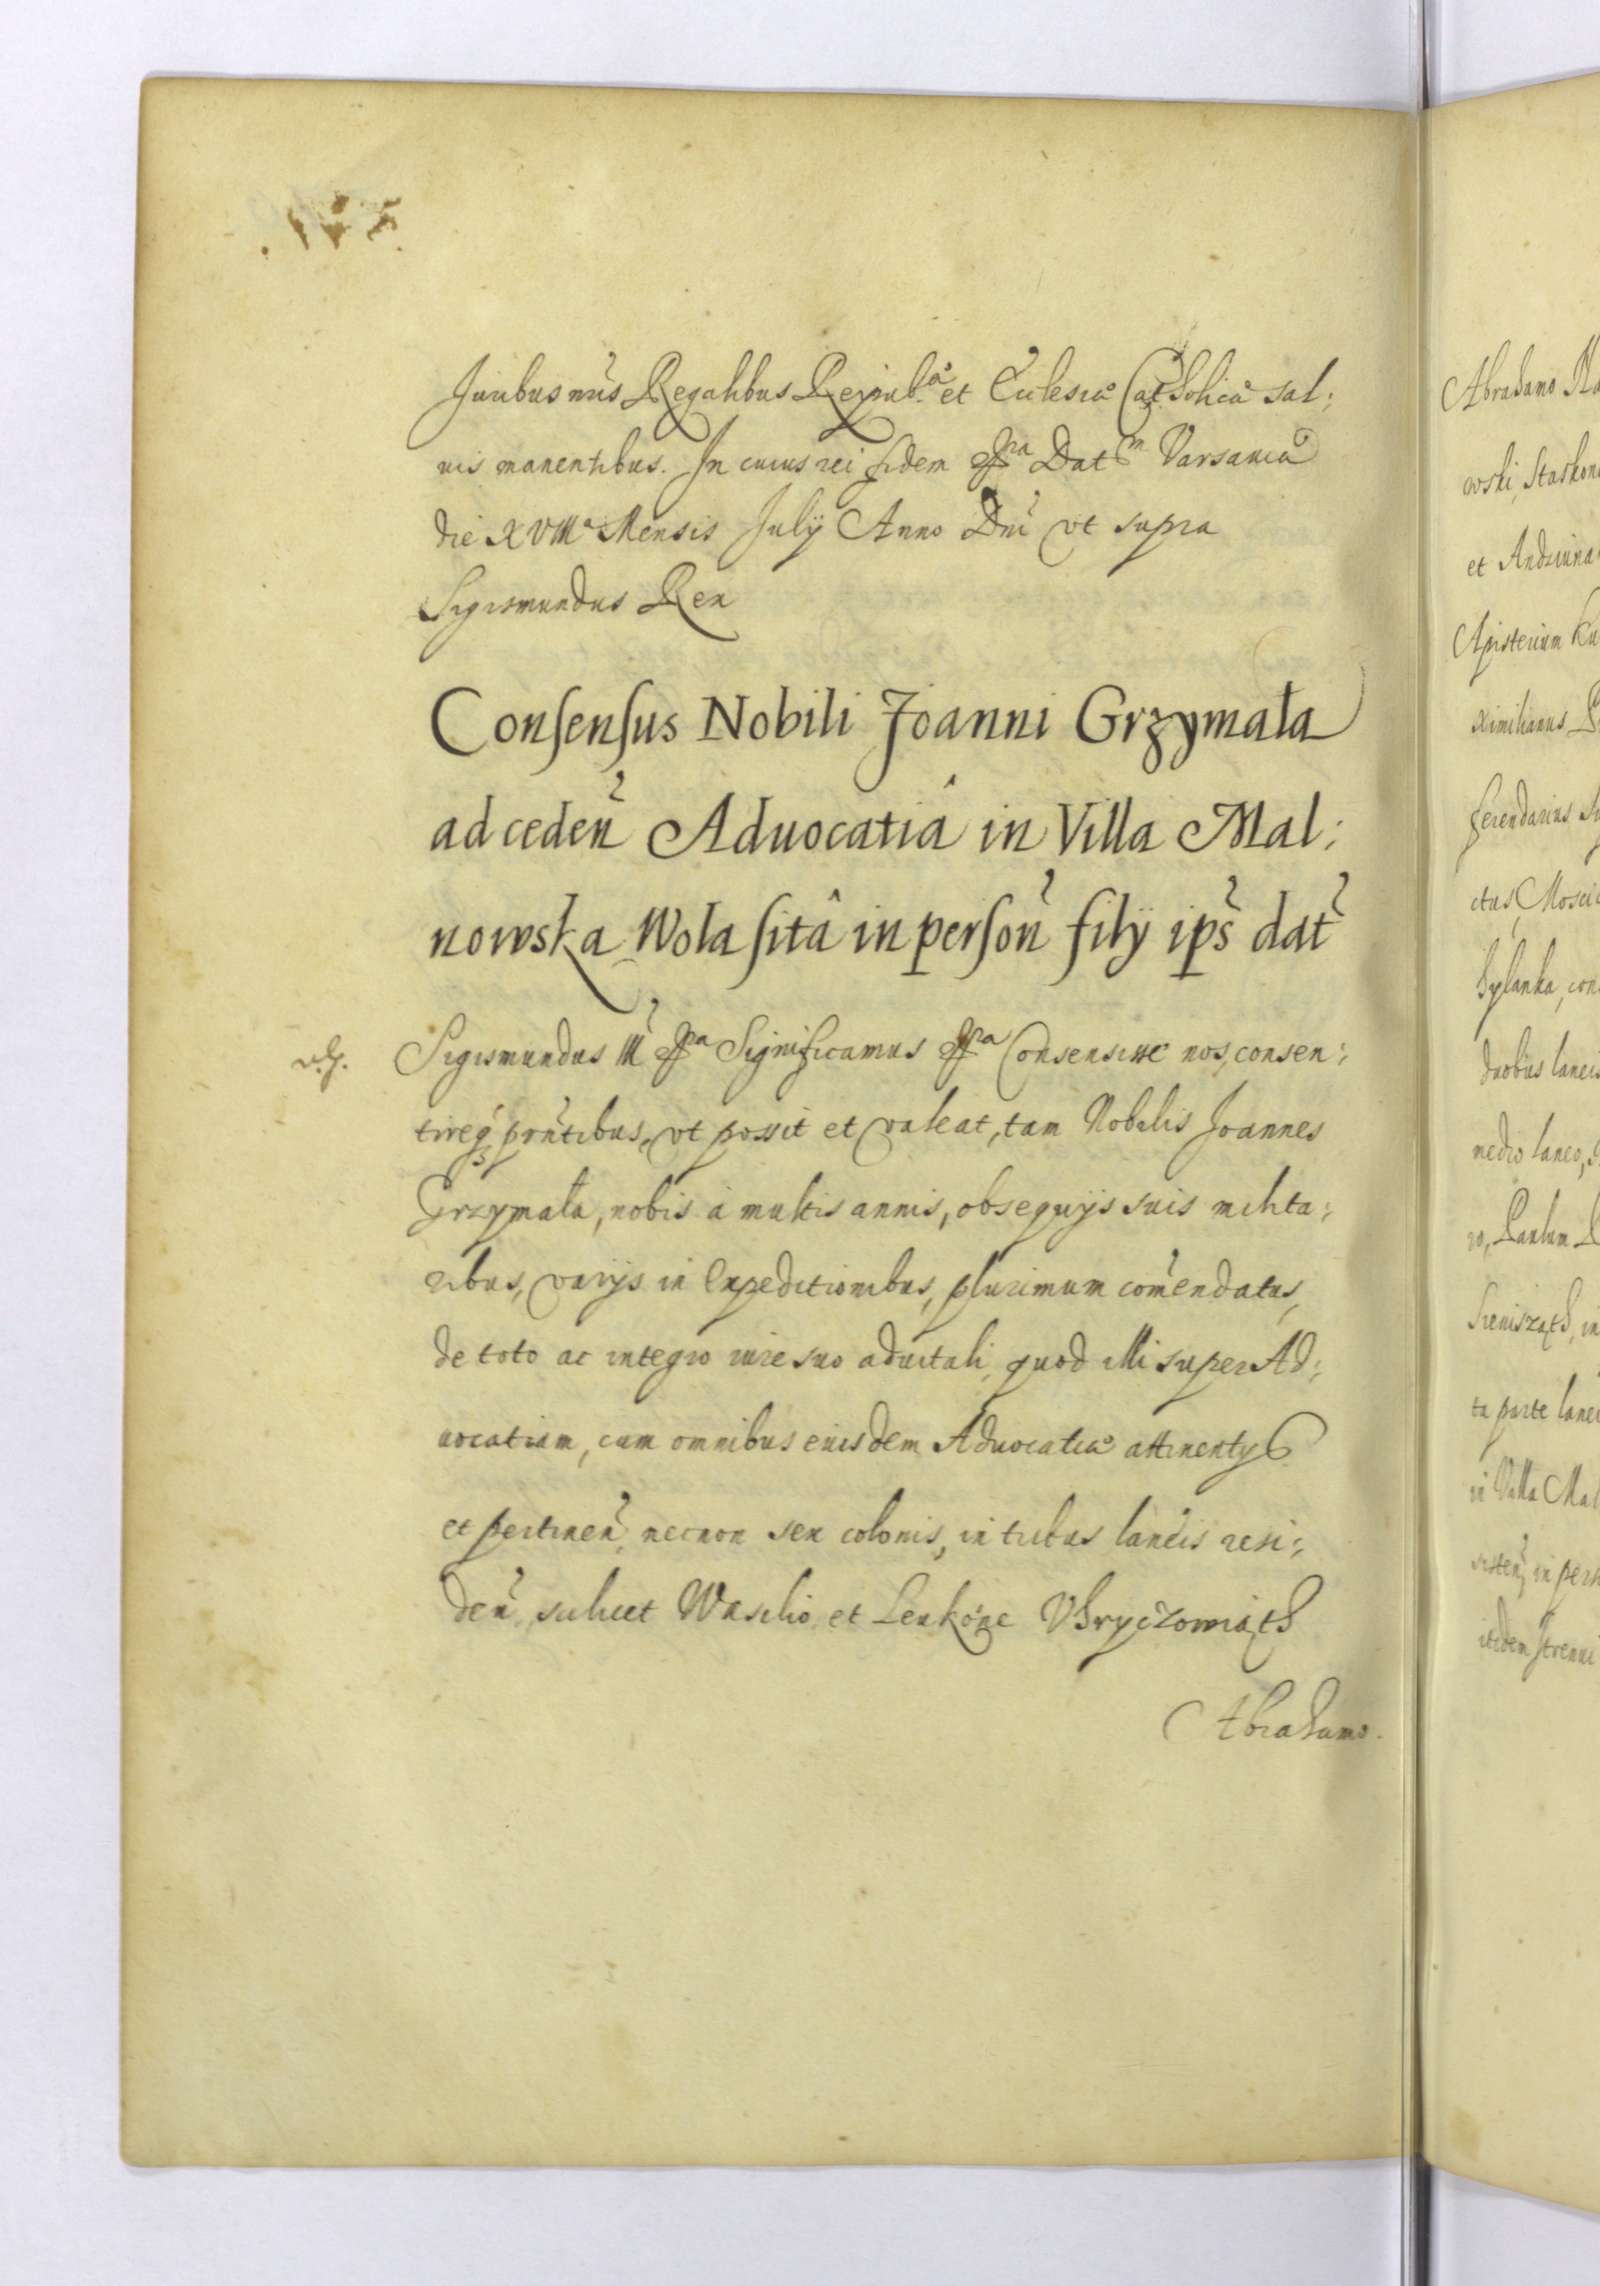 Juribus nris Regalibus Reipub. et Ecclesiæ Catholicæ sal:
uis manentibus. In cuius rei fidem &ra Datm Varsauiæ
die XVIIIa Mensis Julij Anno Dni vt supra
Sigismundus Rex
Consensus Nobili Joanni Grzymała
ad ceden Aduocatiâ in Villa Mal:
nowska Wola sitâ in person filij ips dat
Sigismundus III &ra Significamus &ra Consensisse nos, consen:
tireq prntibus, vt possit et valeat, tam Nobilis Joannes
Grzymała, nobis à multis annis, obsequijs suis milita:
ribus, varijs in Expeditionibus, plurimum comendatus,
de toto ac integro iure suo aduitali, quod illi super Ad:
uocatiam, cum omnibus eiusdem Aduocatiæ attinentijs
et pertinen, necnon sex colonis, in tribus laneis resi:
den, scilicet Wasilio et Lenkone Vhryczowiąth
Abrahamo.
Abrahamo
owski, Staskone
et
ximilianus
ferendarius
ctus, Mosci
con
duobus laneis
medio laneo,
ro, Paulum
in
ta parte lanei
in Villa Mal
in pers
itidem strenui